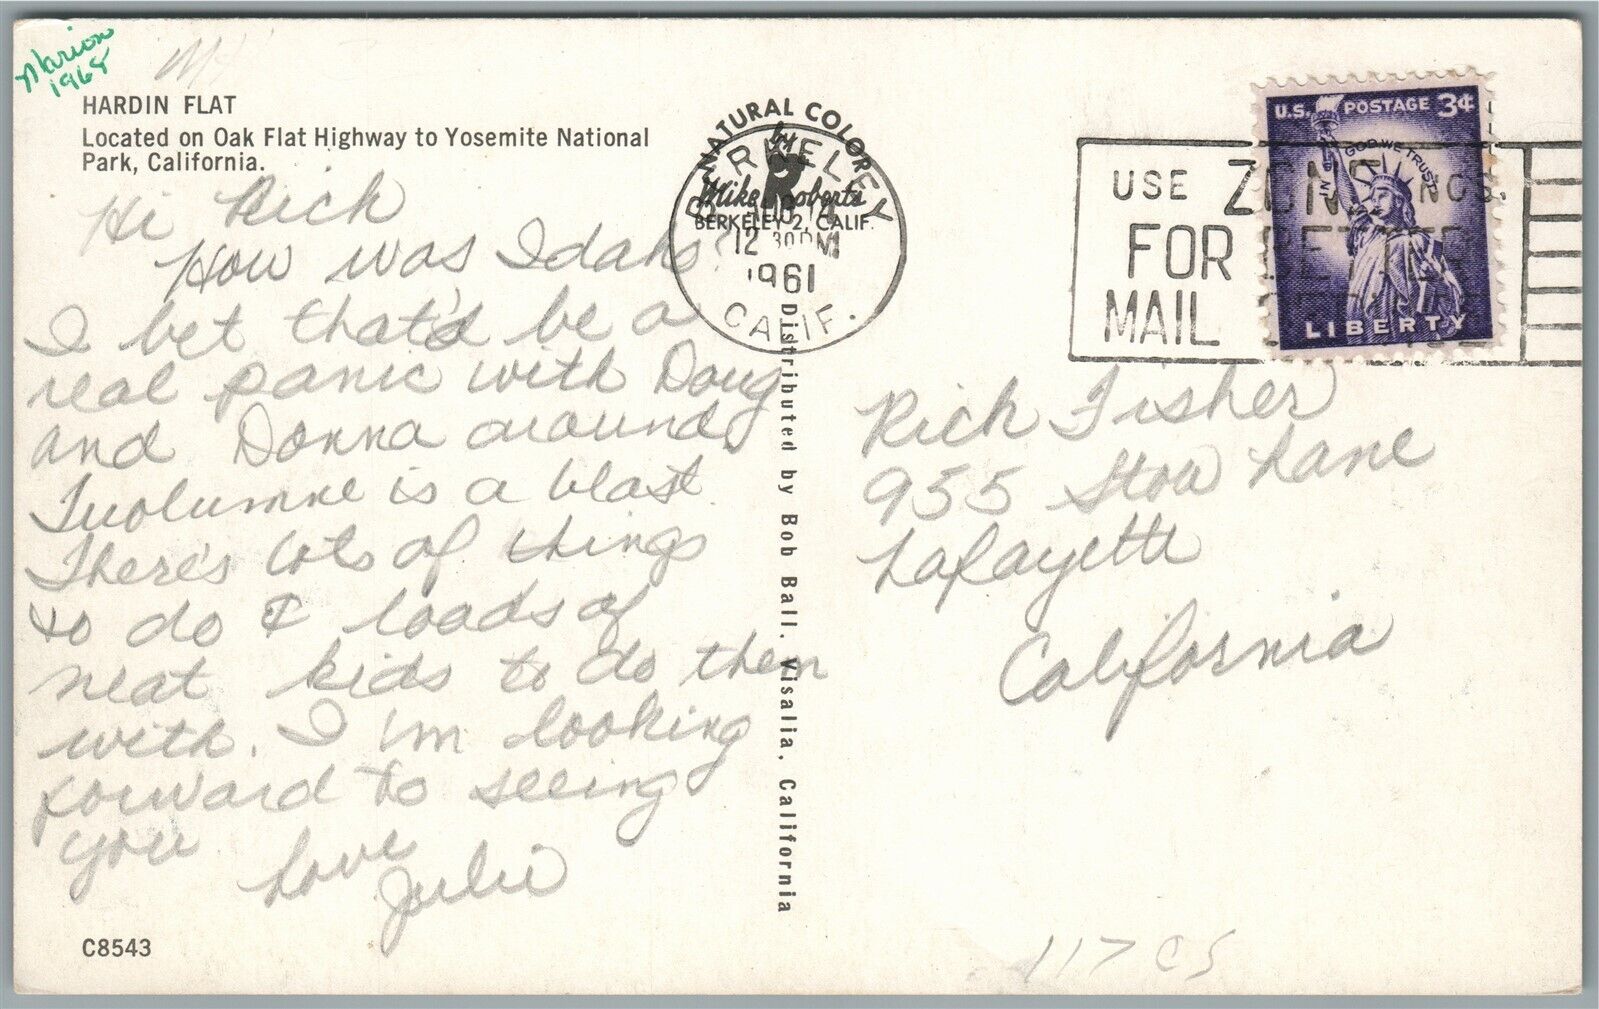 Marion
1968
HARDIN FLAT
Located on Oak Flat Highway to Yosemite National
Park, California.
Hi Rich
How was Idaho?
I bet that'd be a
real panic with Doug
and Donna around.
Tuolumne is a blast.
There's lots of things
to do & loads of
neat kids to do them
with. I'm looking
forward to seeing
you
Love
Julie
C8543
NATURAL COLOR
by
Mike Roberts
BERKELEY 2, CALIF.
BERKELEY
12 30 PM
1961
CALIF.
Distributed by Bob Ball, Visalia, California
USE ZONE NOS.
FOR BETTER
MAIL
U.S. POSTAGE 3¢
IN GOD WE TRUST
LIBERTY
Rich Fisher
955 Stow Lane
Lafayette
California
117 CS